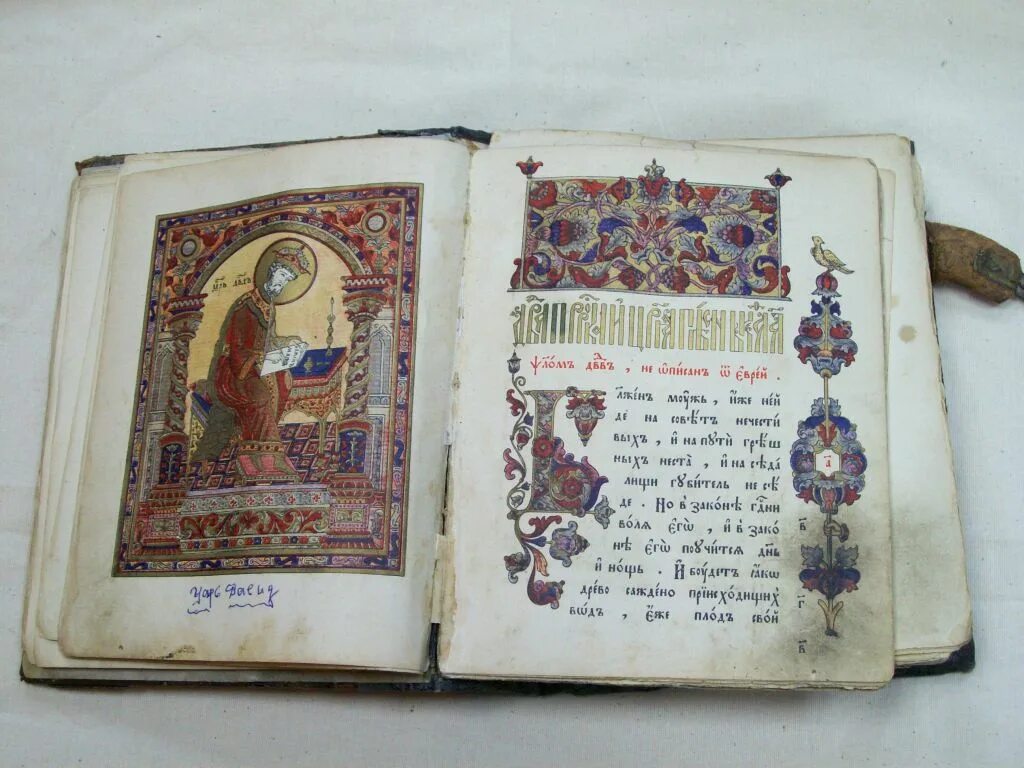 црь двдъ
царь Давид
ѱло́мъ дв҃въ , не ѡ҆пи́санъ ѿ є҆врє́й .
Блаже́нъ моу́жъ , и҆́же не и҆́
де на совѣ́тъ нечести́
выхъ , и҆ на пути̑ грѣ́ш
ныхъ неста̀ , и҆ на сѣда́
лищи губи́тель не сѣ́
де . Но в̾ зако́нѣ гдⷭ҇ни
во́лѧ є҆гѡ̀ , и҆ в̾ зако́
нѣ є҆гѡ̀ поучи́тсѧ дн҃ь
и҆ но́щь . И҆ боу́детъ ꙗ҆́кѡ
дре́во сажде́но при и҆схо́дищихъ
во́дъ , є҆́же пло́дъ сво́й
а҃
в҃
г҃
в҃